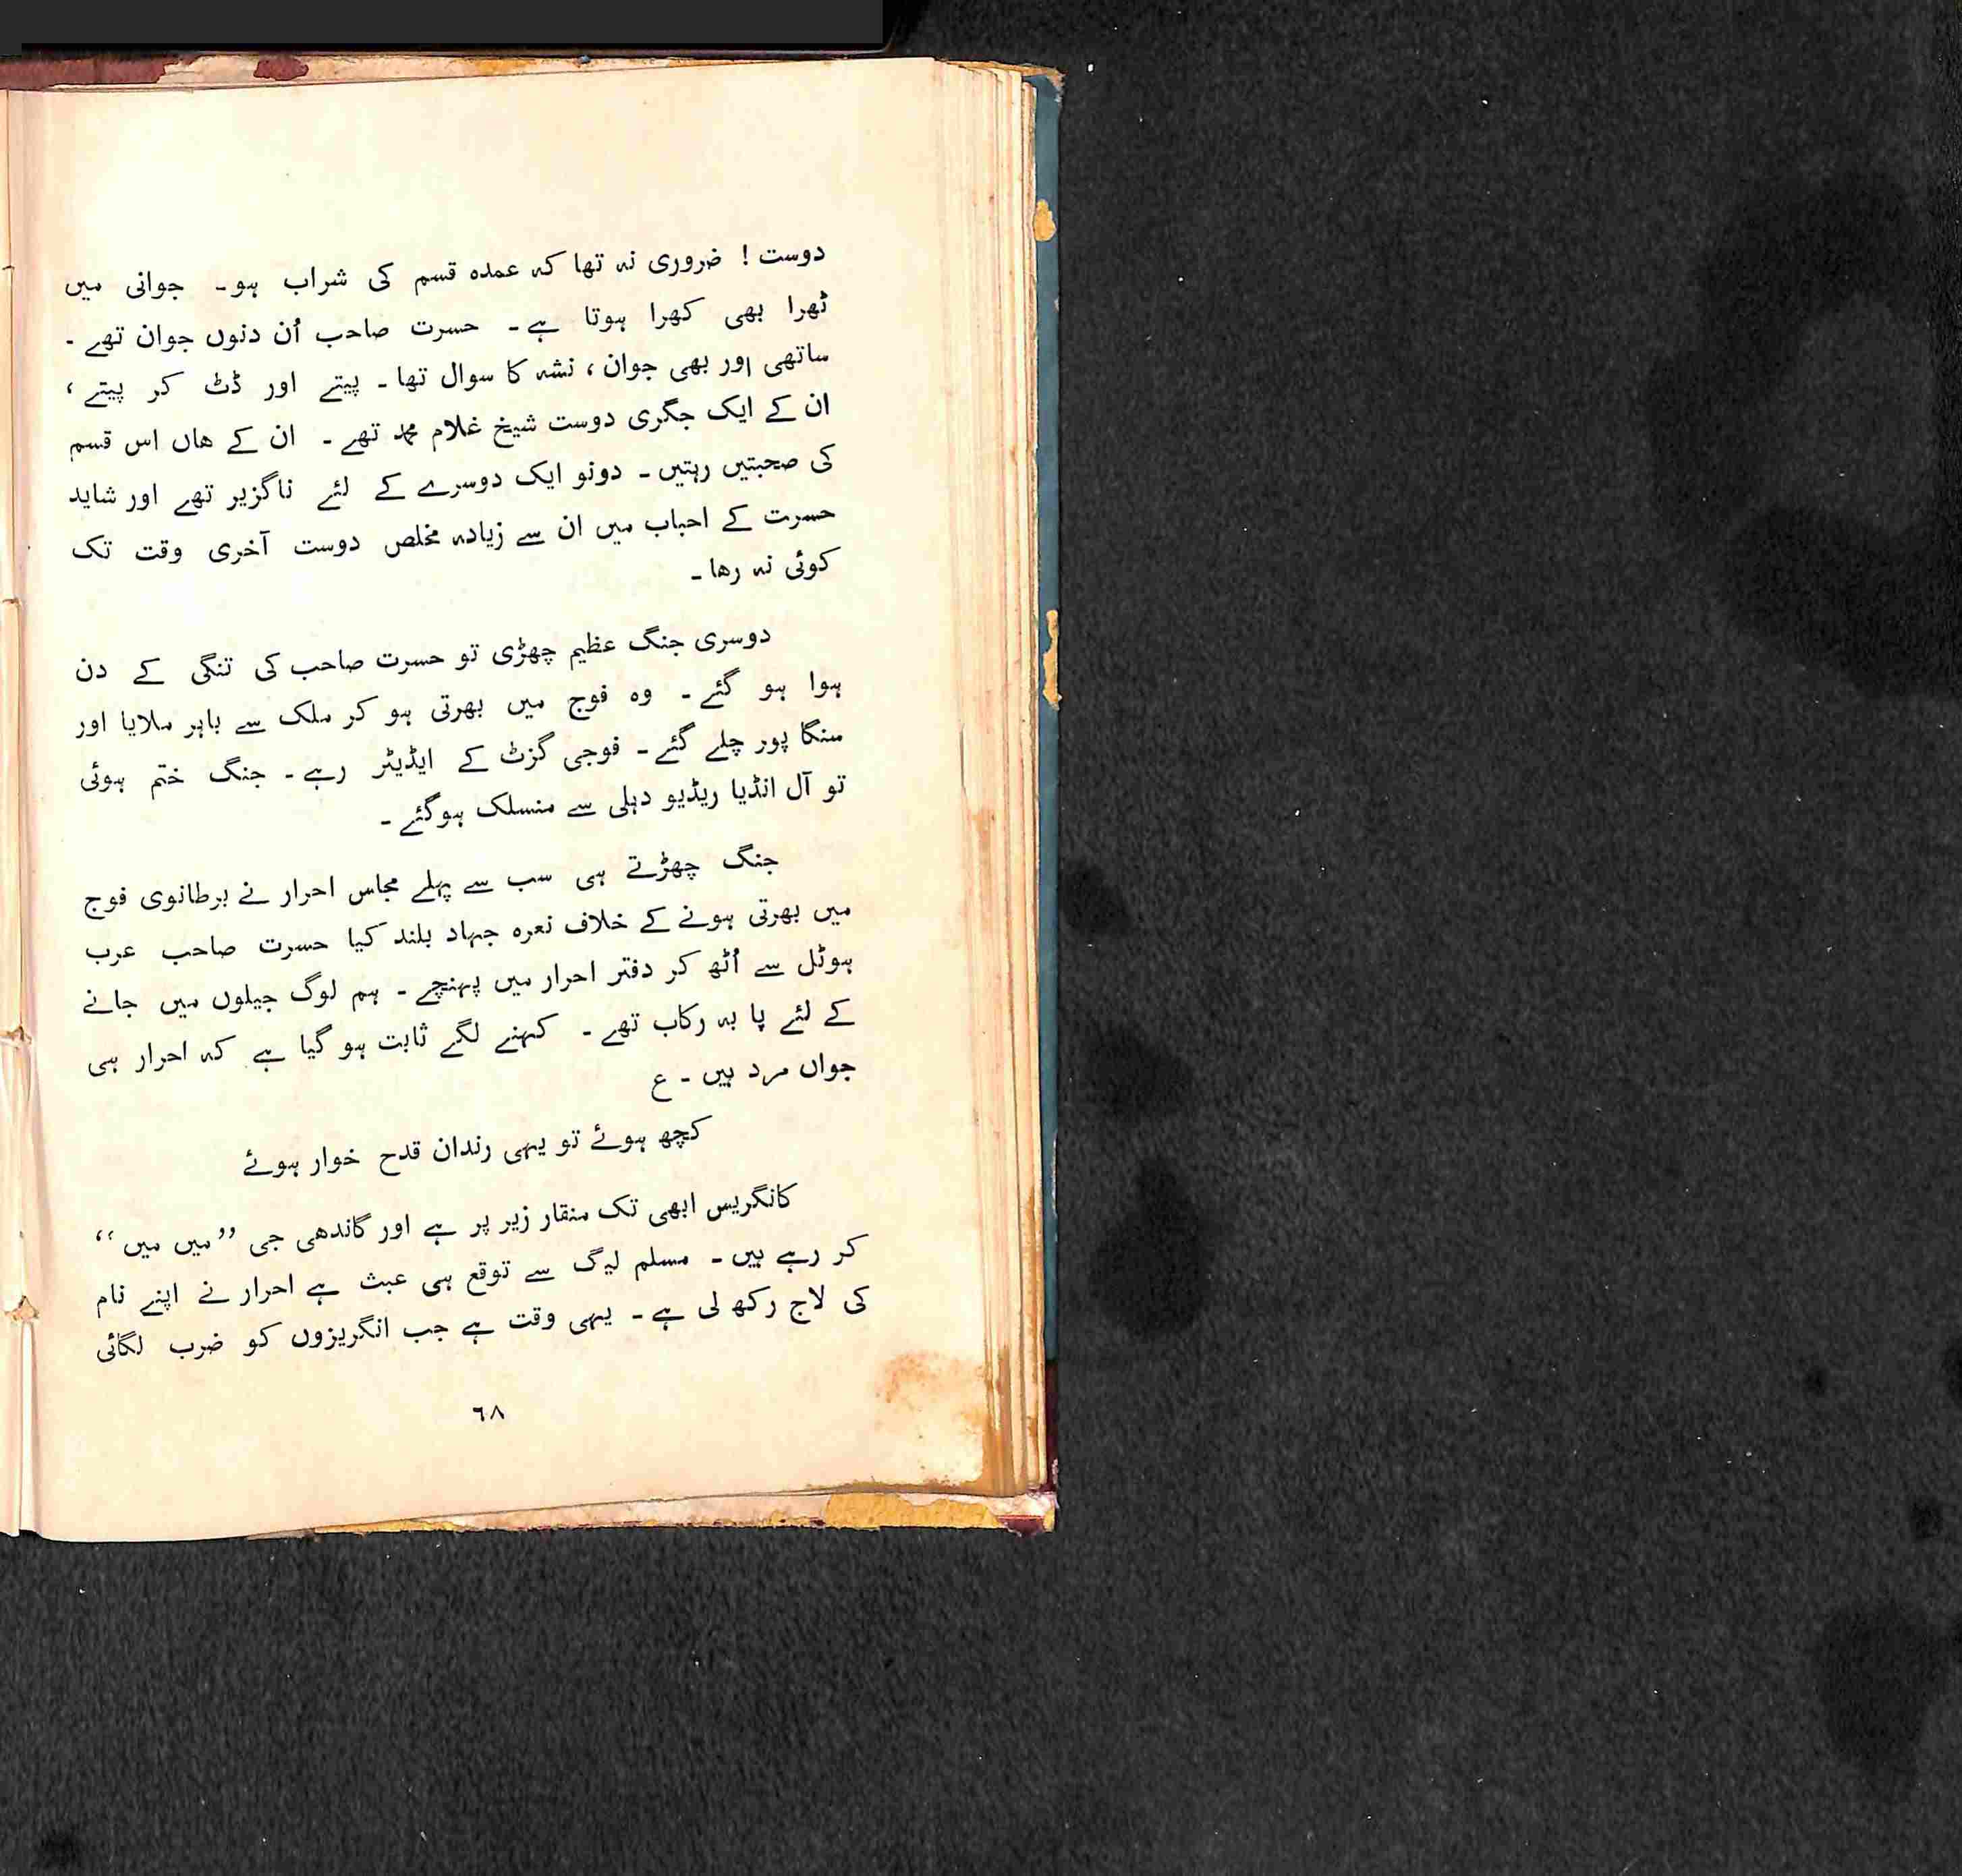 دوست ! ضروری نہ تھا کہ عمدہ قسم کی شراب ہو۔ جوانی میں
ٹھرا بھی کھرا ہوتا ہے۔ حسرت صاحب اُن دنوں جوان تھے ۔
ساتھی اور بھی جوان ، نشہ کا سوال تھا۔ پیتے اور ڈٹ کر پیتے ،
ان کے ایک جگری دوست شیخ غلام محمد تھے ۔ ان کے ھاں اس قسم
کی صحبتیں رہتیں ۔ دونو ایک دوسرے کے لئے ناگزیر تھے اور شاید
حسرت کے احباب میں ان سے زیادہ مخلص دوست آخری وقت تک
کوئی نہ رھا ۔
دوسری جنگ عظیم چھڑی تو حسرت صاحب کی تنگی کے دن
ہوا ہو گئے ۔ وہ فوج میں بھرتی ہو کر ملک سے باہر ملایا اور
سنگا پور چلے گئے ۔ فوجی گزٹ کے ایڈیٹر رہے ۔ جنگ ختم ہوئی
تو آل انڈیا ریڈیو دہلی سے منسلک ہوگئے ۔
جنگ چھڑتے ہی سب سے پہلے مجلس احرار نے برطانوی فوج
میں بھرتی ہونے کے خلاف نعرہ جہاد بلند کیا حسرت صاحب عرب
ہوٹل سے اُٹھ کر دفتر احرار میں پہنچے ۔ ہم لوگ جیلوں میں جانے
کے لئے پا بہ رکاب تھے ۔ کہنے لگے ثابت ہو گیا ہے کہ احرار ہی
جواں مرد ہیں ۔ ع
کچھ ہوئے تو یہی رندان قدح خوار ہوئے
کانگریس ابھی تک منقار زیر پر ہے اور گاندھی جی ”میں میں“
کر رہے ہیں ۔ مسلم لیگ سے توقع ہی عبث ہے احرار نے اپنے نام
کی لاج رکھ لی ہے ۔ یہی وقت ہے جب انگریزوں کو ضرب لگائی
٦٨